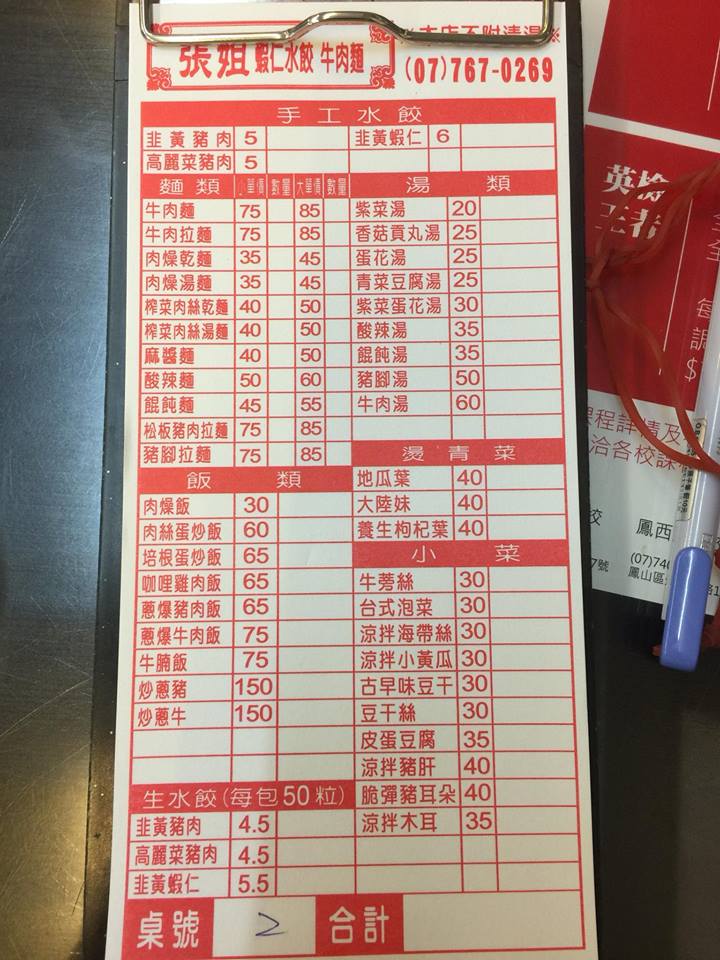 ※本店不附清湯※
張姐 蝦仁水餃 牛肉麵
(07)767-0269
手工水餃
韭黃豬肉 5 韭黃蝦仁 6
高麗菜豬肉 5
麵類 小單價 數量 大單價 數量 湯類
牛肉麵 75 85 紫菜湯 20
牛肉拉麵 75 85 香菇貢丸湯 25
肉燥乾麵 35 45 蛋花湯 25
肉燥湯麵 35 45 青菜豆腐湯 25
榨菜肉絲乾麵 40 50 紫菜蛋花湯 30
榨菜肉絲湯麵 40 50 酸辣湯 35
麻醬麵 40 50 餛飩湯 35
酸辣麵 50 60 豬腳湯 50
餛飩麵 45 55 牛肉湯 60
松板豬肉拉麵 75 85
豬腳拉麵 75 85 燙青菜
飯類 地瓜葉 40
肉燥飯 30 大陸妹 40
肉絲蛋炒飯 60 養生枸杞葉 40
培根蛋炒飯 65 小菜
咖哩雞肉飯 65 牛蒡絲 30
蔥爆豬肉飯 65 台式泡菜 30
蔥爆牛肉飯 75 涼拌海帶絲 30
牛腩飯 75 涼拌小黃瓜 30
炒蔥豬 150 古早味豆干 30
炒蔥牛 150 豆干絲 30
皮蛋豆腐 35
涼拌豬肝 40
生水餃(每包50粒) 脆彈豬耳朵 40
韭黃豬肉 4.5 涼拌木耳 35
高麗菜豬肉 4.5
韭黃蝦仁 5.5
桌號 2 合計
英檢
王者
每
調
$
課程詳情及
洽各校課
校
鳳西
7號
(07)740
鳳山區